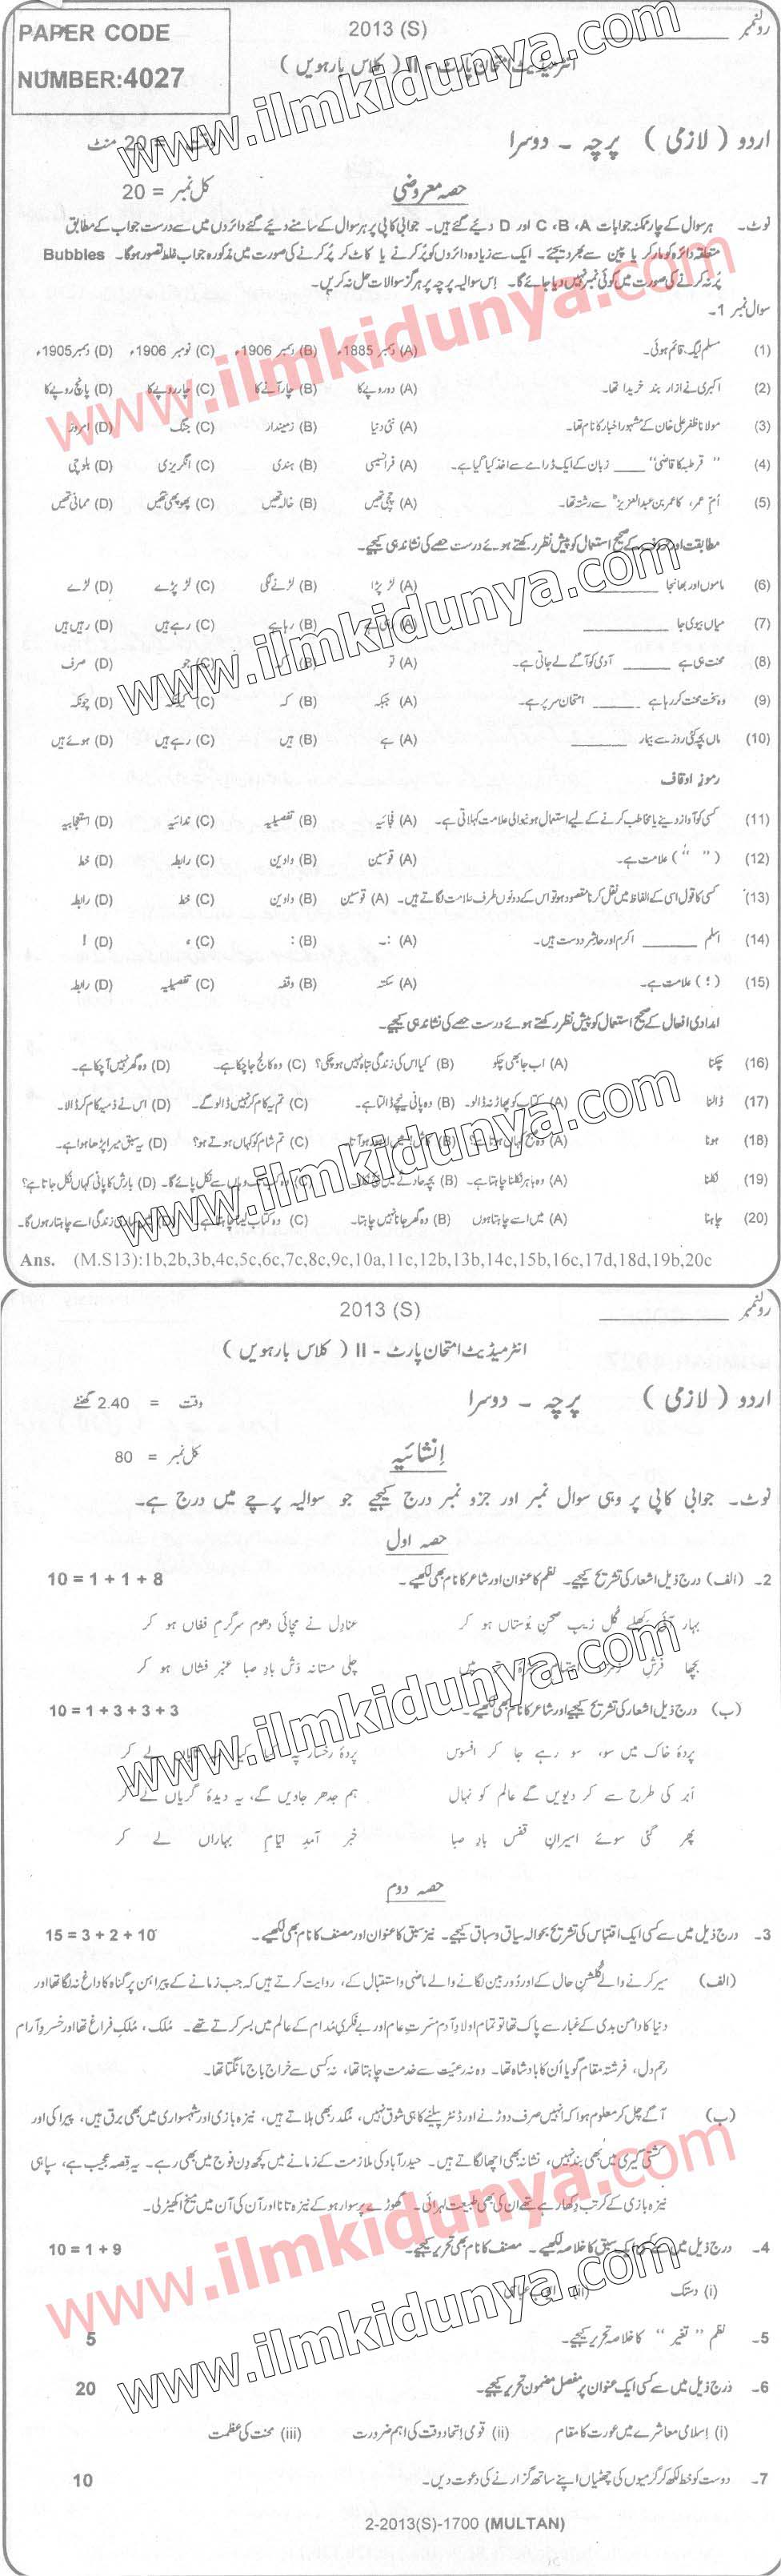 PAPER CODE
NUMBER:4027
2013 (S)
رولنمبر
انٹرمیڈیٹ امتحان پارٹ - II ( کلاس بارہویں )
اردو ( لازمی ) پرچہ - دوسرا
وقت = 20 منٹ
حصہ معروضی
کل نمبر = 20
نوٹ۔ ہر سوال کے چار ممکنہ جوابات A، B، C اور D دیئے گئے ہیں۔ جوابی کاپی پر ہر سوال کے سامنے دیئے گئے دائروں میں سے درست جواب کے مطابق
متعلقہ دائرہ کو مارکر یا پین سے بھر دیجئے۔ ایک سے زیادہ دائروں کو پُر کرنے یا کاٹ کر پُر کرنے کی صورت میں مذکورہ جواب غلط تصور ہوگا۔ Bubbles
پُر نہ کرنے کی صورت میں کوئی نمبر نہیں دیا جائے گا۔ اِس سوالیہ پرچہ پر ہرگز سوالات حل نہ کریں۔
سوال نمبر 1۔
(1) مسلم لیگ قائم ہوئی۔ (A) دسمبر 1885ء (B) دسمبر 1906ء (C) نومبر 1906ء (D) دسمبر 1905ء
(2) اکبری نے ازار بند خریدا تھا۔ (A) دو روپے کا (B) چار آنے کا (C) چار روپے کا (D) پانچ روپے کا
(3) مولانا ظفر علی خان کے مشہور اخبار کا نام تھا۔ (A) نئی دنیا (B) زمیندار (C) جنگ (D) امروز
(4) ” قرطبہ کا قاضی “ ____ زبان کے ایک ڈرامے سے اخذ کیا گیا ہے۔ (A) فرانسیسی (B) ہندی (C) انگریزی (D) بلوچی
(5) اُمِ عمر، کا عمر بن عبدالعزیزؒ سے رشتہ تھا۔ (A) چچی تھیں (B) خالہ تھیں (C) پھوپھی تھیں (D) ممانی تھیں
مطابقت اور حروف کے صحیح استعمال کو پیش نظر رکھتے ہوئے درست حصے کی نشاندہی کیجیے۔
(6) ماموں اور بھانجا ________ (A) لڑ پڑا (B) لڑنے لگی (C) لڑ پڑے (D) لڑے
(7) میاں بیوی جا ________ (A) (B) رہا ہے (C) رہے ہیں (D) رہیں ہیں
(8) محنت ہی ہے ____ آدمی کو آگے لے جاتی ہے۔ (A) تو (B) کہ (C) جو (D) صرف
(9) وہ سخت محنت کر رہا ہے ____ امتحان سر پر ہے۔ (A) جبکہ (B) کہ (C) کیونکہ (D) چونکہ
(10) ماں بچہ کئی روز سے بیمار ____ (A) ہے (B) ہیں (C) رہے ہیں (D) ہوئے ہیں
رموزِ اوقاف
(11) کسی کو آواز دینے یا مخاطب کرنے کے لیے استعمال ہونے والی علامت کہلاتی ہے۔ (A) فجائیہ (B) تفصیلیہ (C) ندائیہ (D) استعجابیہ
(12) ( ” “ ) علامت ہے۔ (A) قوسین (B) واوین (C) رابطہ (D) خط
(13) کسی کا قول اسی کے الفاظ میں نقل کرنا مقصود ہو تو اس کے دونوں طرف علامت لگاتے ہیں۔ (A) قوسین (B) واوین (C) خط (D) رابطہ
(14) اسلم ____ اکرم اور حاشر دوست ہیں۔ (A) :۔ (B) : (C) ، (D) !
(15) ( ؛ ) علامت ہے۔ (A) سکتہ (B) وقفہ (C) تفصیلیہ (D) رابطہ
امدادی افعال کے صحیح استعمال کو پیش نظر رکھتے ہوئے درست حصے کی نشاندہی کیجیے۔
(16) چکنا (A) اب جا بھی چکو (B) کیا اس کی زندگی تباہ نہیں ہو چکی؟ (C) وہ کالج جا چکا ہے۔ (D) وہ گھر نہیں آ چکا ہے۔
(17) ڈالنا (A) کتاب کو پھاڑ نہ ڈالو۔ (B) وہ پانی نیچے ڈالتا ہے۔ (C) تم یہ کام کر نہیں ڈالو گے۔ (D) اس نے ذمیہ کام کر ڈالا۔
(18) ہونا (A) وہ صبح کہاں ہوتا ہے؟ (B) ہو آتا۔ (C) تم شام کو کہاں ہوتے ہو؟ (D) یہ سبق میرا پڑھا ہوا ہے۔
(19) نکلنا (A) وہ باہر نکلنا چاہتا ہے۔ (B) بچہ حادثے میں (C) وہاں سے نکل پائے گا۔ (D) بارش کا پانی کہاں نکل جاتا ہے؟
(20) چاہنا (A) میں اسے چاہتا ہوں (B) وہ گھر جانا نہیں چاہتا۔ (C) وہ کتاب لینا چاہتا ہے۔ (D) زندگی اسے چاہتا رہوں گا۔
Ans. (M.S13):1b,2b,3b,4c,5c,6c,7c,8c,9c,10a,11c,12b,13b,14c,15b,16c,17d,18d,19b,20c
2013 (S)
رولنمبر
انٹرمیڈیٹ امتحان پارٹ - II ( کلاس بارہویں )
اردو ( لازمی ) پرچہ - دوسرا
وقت = 2.40 گھنٹے
اِنشائیہ
کل نمبر = 80
نوٹ۔ جوابی کاپی پر وہی سوال نمبر اور جزو نمبر درج کیجیے جو سوالیہ پرچے میں درج ہے۔
حصہ اول
2۔ (الف) درج ذیل اشعار کی تشریح کیجیے۔ نظم کا عنوان اور شاعر کا نام بھی لکھیے۔ 10 = 1 + 1 + 8
بہار آئی کھلے گل زیبِ صحنِ بوستاں ہو کر عنادل نے مچائی دھوم سرگرمِ فغاں ہو کر
بچھا فرشِ میں چلی مستانہ وش بادِ صبا عنبر فشاں ہو کر
(ب) درج ذیل اشعار کی تشریح کیجیے اور شاعر کا نام بھی لکھیے۔ 10 = 1 + 3 + 3 + 3
پردۂ خاک میں سو، سو رہے جا کر افسوس پردۂ رخسار پہ کیا کیا لے کر
اَبر کی طرح سے کر دیویں گے عالم کو نہال ہم جدھر جاویں گے، یہ دیدۂ گریاں لے کر
پھر گئی سوئے اسیرانِ قفس بادِ صبا خبرِ آمدِ ایامِ بہاراں لے کر
حصہ دوم
3۔ درج ذیل میں سے کسی ایک اقتباس کی تشریح بحوالہ سیاق و سباق کیجیے۔ نیز سبق کا عنوان اور مصنف کا نام بھی لکھیے۔ 15 = 3 + 2 + 10
(الف) سیر کرنے والے گلشنِ حال کے اور دُوربین لگانے والے ماضی و استقبال کے، روایت کرتے ہیں کہ جب زمانے کے پیراہن پر گناہ کا داغ نہ لگا تھا اور
دنیا کا دامن بدی کے غبار سے پاک تھا تو تمام اولادِ آدم مسرتِ عام اور بے فکریِ مُدام کے عالم میں بسر کرتے تھے۔ مُلک، مُلکِ فراغ تھا اور خسروِ آرام
رحم دل، فرشتہ مقام گویا اُن کا بادشاہ تھا۔ وہ نہ رعیت سے خدمت چاہتا تھا، نہ کسی سے خراج باج مانگتا تھا۔
(ب) آگے چل کر معلوم ہوا کہ انہیں صرف دوڑنے اور ڈنٹر پیلنے کا ہی شوق نہیں، مگدر بھی ہلاتے ہیں، نیزہ بازی اور شہسواری میں بھی برق ہیں، پیراکی اور
کشتی گیری میں بھی بند نہیں، نشانہ بھی اچھا لگاتے ہیں۔ حیدرآباد کی ملازمت کے زمانے میں کچھ دِن فوج میں بھی رہے۔ یہ قصہ عجیب ہے، سپاہی
نیزہ بازی کے کرتب دِکھا رہے تھے ان کی بھی طبیعت لہرائی۔ گھوڑے پر سوار ہو کے نیزہ تانا اور آن کی آن میں میخ اکھیڑ لی۔
4۔ درج ذیل میں سے کسی ایک سبق کا خلاصہ لکھیے۔ مصنف کا نام بھی تحریر کیجیے۔ 10 = 1 + 9
(i) دستک (ii) ایوب عباسی
5۔ نظم ” تغیر “ کا خلاصہ تحریر کیجیے۔ 5
6۔ درج ذیل میں سے کسی ایک عنوان پر مفصل مضمون تحریر کیجیے۔ 20
(i) اِسلامی معاشرے میں عورت کا مقام (ii) قومی اتحاد وقت کی اہم ضرورت (iii) محنت کی عظمت
7۔ دوست کو خط لکھ کر گرمیوں کی چھٹیاں اپنے ساتھ گزارنے کی دعوت دیں۔ 10
2-2013(S)-1700 (MULTAN)
www.ilmkidunya.com
www.ilmkidunya.com
www.ilmkidunya.com
www.ilmkidunya.com
www.ilmkidunya.com
www.ilmkidunya.com
www.ilmkidunya.com